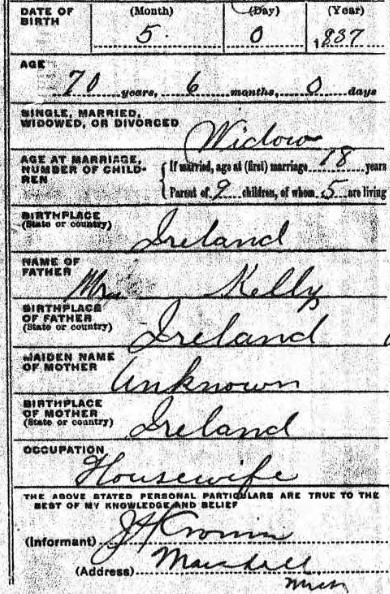 DATE OF BIRTH (Month) (Day) (Year)
5 0 1837
AGE
70 years, 6 months, 0 days
SINGLE, MARRIED, WIDOWED, OR DIVORCED
Widow
AGE AT MARRIAGE, NUMBER OF CHILDREN
If married, age at (first) marriage 18 years
Parent of 9 children, of whom 5 are living
BIRTHPLACE
(State or country)
Ireland
NAME OF FATHER
Mr Kelly
BIRTHPLACE OF FATHER
(State or country)
Ireland
MAIDEN NAME OF MOTHER
Unknown
BIRTHPLACE OF MOTHER
(State or country)
Ireland
OCCUPATION
Housewife
THE ABOVE STATED PERSONAL PARTICULARS ARE TRUE TO THE
BEST OF MY KNOWLEDGE AND BELIEF
(Informant) J H Cronin
(Address) Marshall
Mich